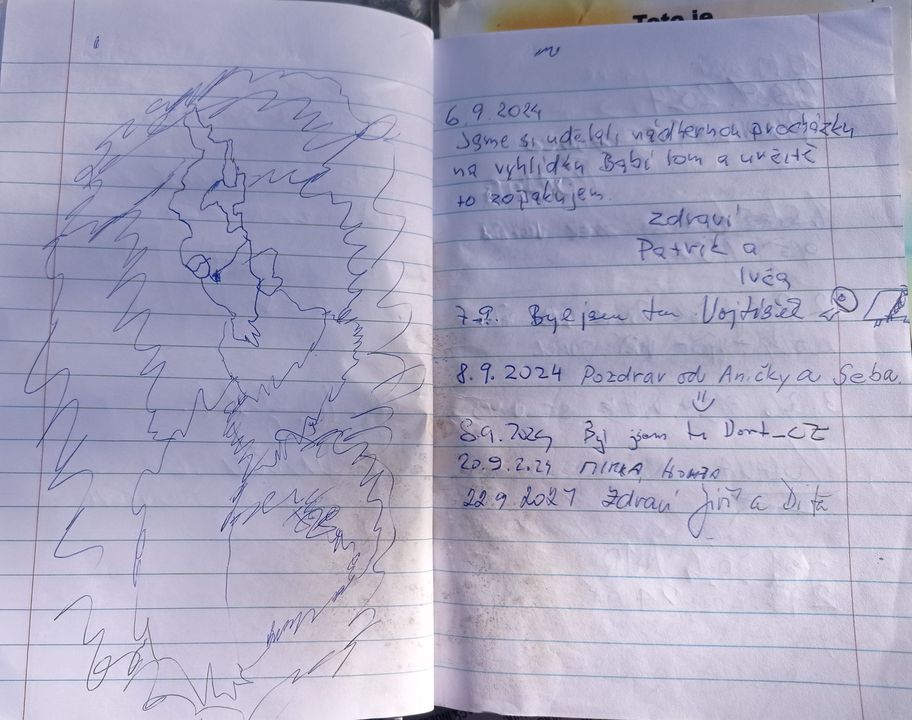 Toto je
6.9.2024
Jsme si udělali nádhernou procházku
na vyhlídku Babí lom a určitě
to zopakujem.
Zdraví
Patrik a
Ivča
7.9. Byl jsem tu Vojtíšek
8.9.2024 Pozdrav od Aničky a Seba.
8.9.2024 Byl jsem tu Dort_CZ
20.9.2024 MIRKA, HONZA
22.9.2024 Zdraví Jiří a Dita